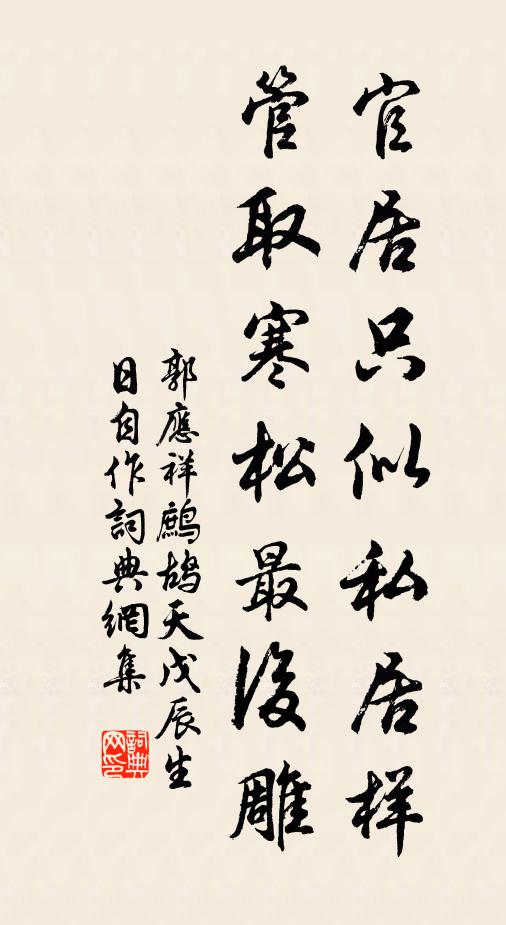 官居只似私居样
管取寒松最後雕
郭應祥鷓鴣天戊辰生
日自作詞典網集
詞典
网印